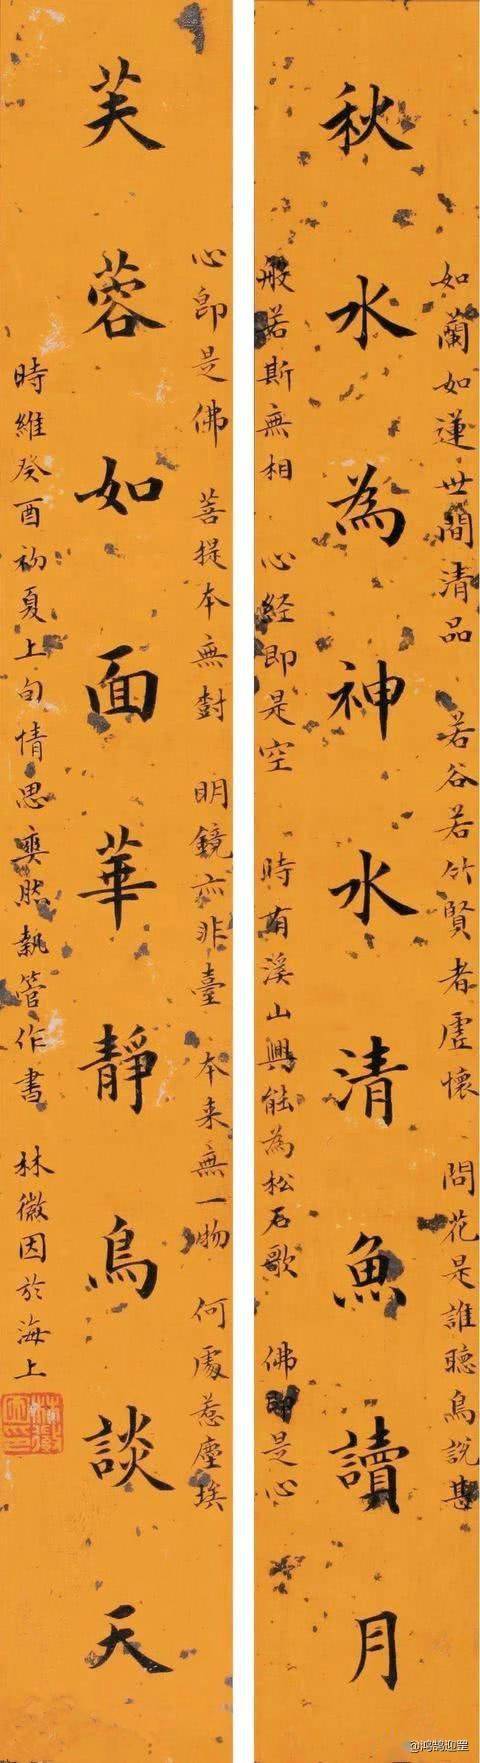 如蘭如蓮世間清品 若谷若竹賢者虛懷 問花是誰聽鳥說甚
秋水為神水清魚讀月
般若斯無相 心経即是空 時有溪山興能為松石歌 佛即是心
心卽是佛 菩提本無樹 明鏡亦非臺 本来無一物 何處惹塵埃
芙蓉如面華靜鳥談天
時維癸酉初夏上旬情思爽然執管作書 林徽因於海上
@鸿鹄迎罡